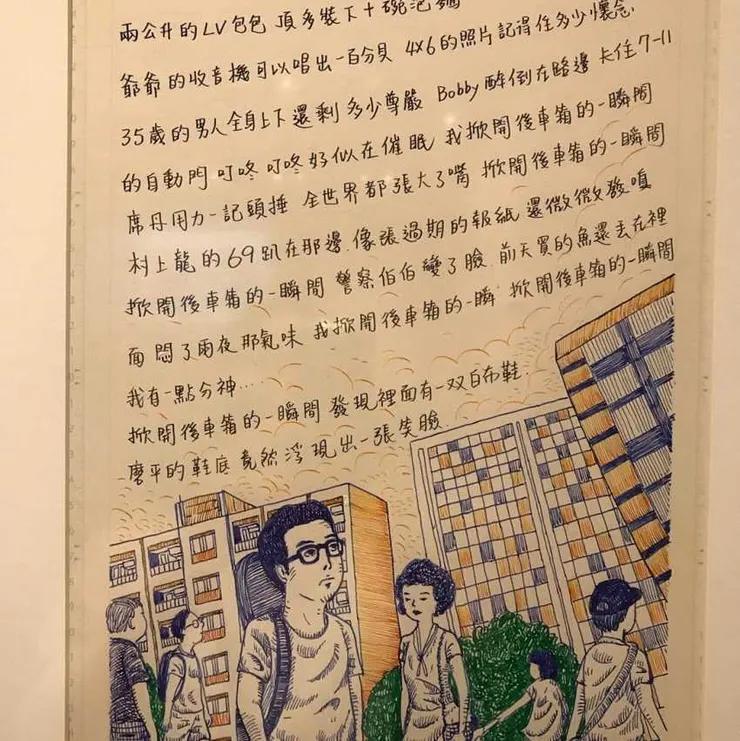 兩公升的LV包包 頂多裝下十碗泡麵
爺爺的收音機可以唱出一百分貝 4X6的照片記得住多少懷念
35歲的男人全身上下還剩多少尊嚴 Bobby醉倒在路邊 卡住7-11
的自動門 叮咚叮咚好似在催眠 我掀開後車箱的一瞬間
席丹用力一記頭捶 全世界都張大了嘴 掀開後車箱的一瞬間
村上龍的69趴在那邊.像張過期的報紙 還微微發嗔
掀開後車箱的一瞬間 警察伯伯變了臉 前天買的魚還丟在裡
面 悶了兩夜那氣味 我掀開後車箱的一瞬 掀開後車箱的一瞬間
我有一點分神....
掀開後車箱的一瞬間 發現裡面有一双白布鞋.
磨平的鞋底 竟然浮現出一張笑臉